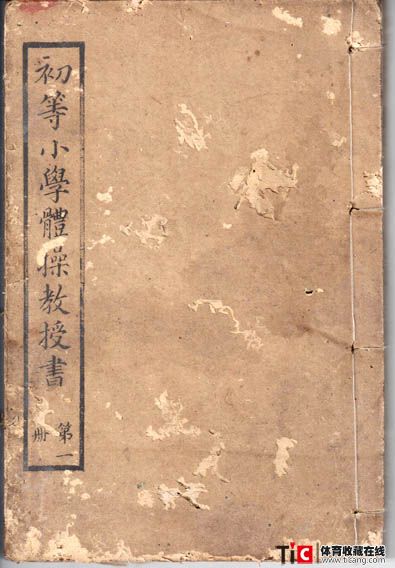 初等小學體操教授書
第一
册
TiC 体育收藏在线
www.ticang.com